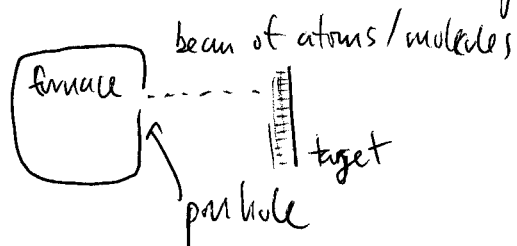 beam of atoms/molecules
furnace
target
pinhole